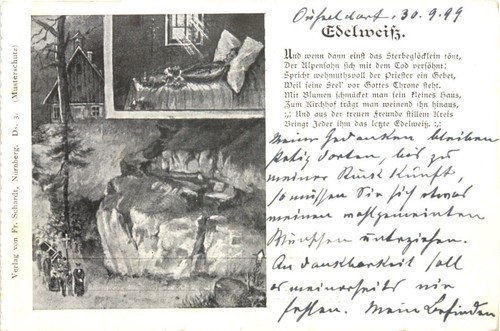 Düsseldorf, 30.9.99
Edelweiß.
Und wenn dann einst das Sterbeglöcklein tönt,
Der Alpensohn sich mit dem Tod versöhnt;
Spricht wehmuthsvoll der Priester ein Gebet,
Weil seine Seel' vor Gottes Throne steht.
Mit Blumen schmückt man sein kleines Haus,
Zum Kirchhof trägt man weinend ihn hinaus,
:,: Und aus der treuen Freunde stillem Kreis
Bringt Jeder ihm das letzte Edelweiß. :,:
Meine Gedanken bleiben
dorten, bis zu
meiner Rückkunft,
so müssen Sie sich etwas
meinen wohlgemeinten
Wünschen unterziehen.
An Dankbarkeit soll
es meinerseits nie
fehlen. Mein Befinden
Verlag von Fr. Schardt, Nürnberg. Ds. 3. (Musterschutz)